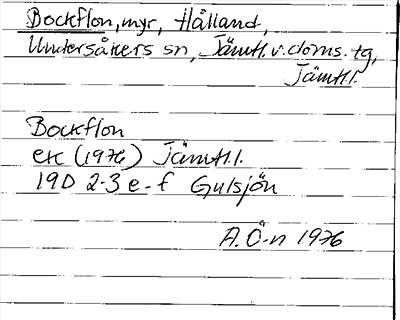 Bockflon, myr, Hålland,
Undersåkers sn, Jämtl. v. doms. tg,
Jämtl l.
Bockflon
ek (1976) Jämtl. l.
19D 2-3 e-f Gulsjön
A. Ö-n 1976